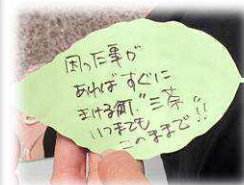 困った事が
あればすぐに
きける町、"三茶"
いつまでも
このままで!!